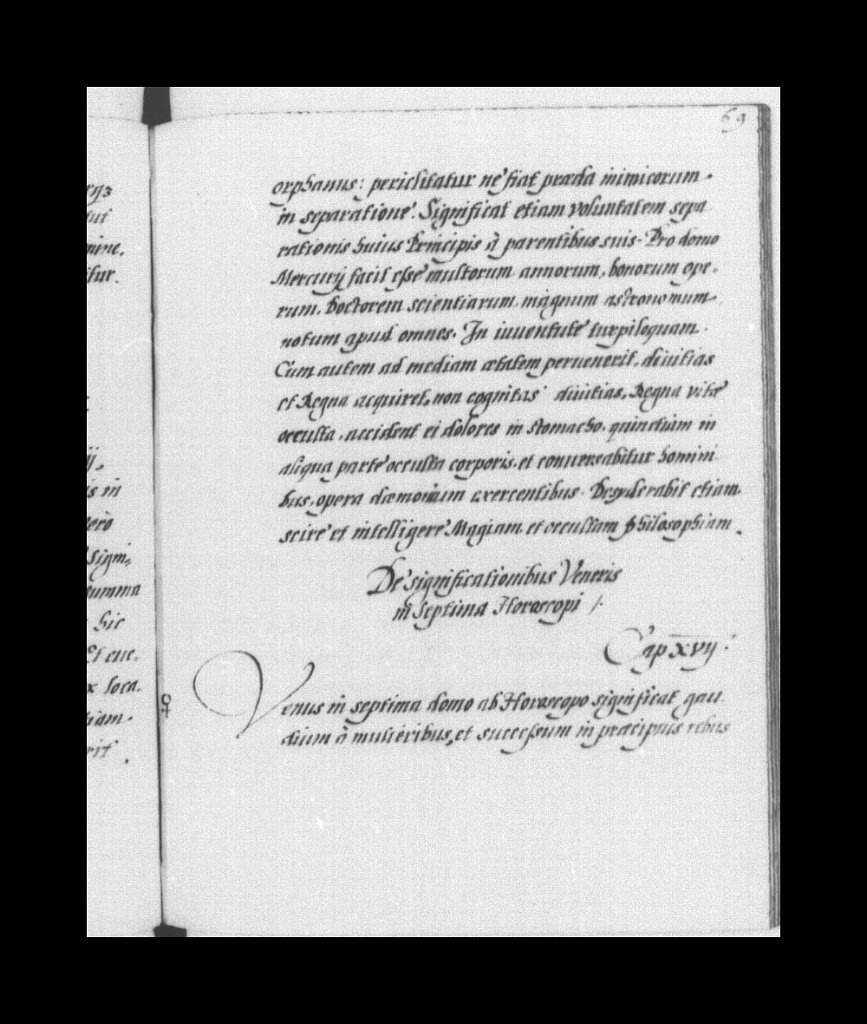 69
orphanus: periclitatur ne fiat præda inimicorum.
in separatione. Significat etiam voluntatem sepa
rationis huius Principis à parentibus suis. Pro domo
Mercurij facit esse multorum annorum, bonorum ope-
rum. Doctorem scientiarum magnum astronomum
notum apud omnes. In iuventute turpiloquam.
Cum autem ad mediam ætatem pervenerit, divitias
et Regna acquiret, non cognitas divitias, Regna vitæ
occulta, accident ei dolores in stomacho, quinetiam in
aliqua parte occulta corporis, et conversabitur homini
bus, opera dæmonum exercentibus. Desyderabit etiam
scire et intelligere Magiam et occultam philosophiam.
De significationibus Veneris
in Septima Horoscopi /.
Cap XVIj.
Venus in septima domo ab Horoscopo significat gau
dium à mulieribus, et successum in præcipuis rebus
mine.
itur.
ij,
is in
verò
Signi,
summa
hic
Et eve.
x loca.
tiam.
rit.
♀